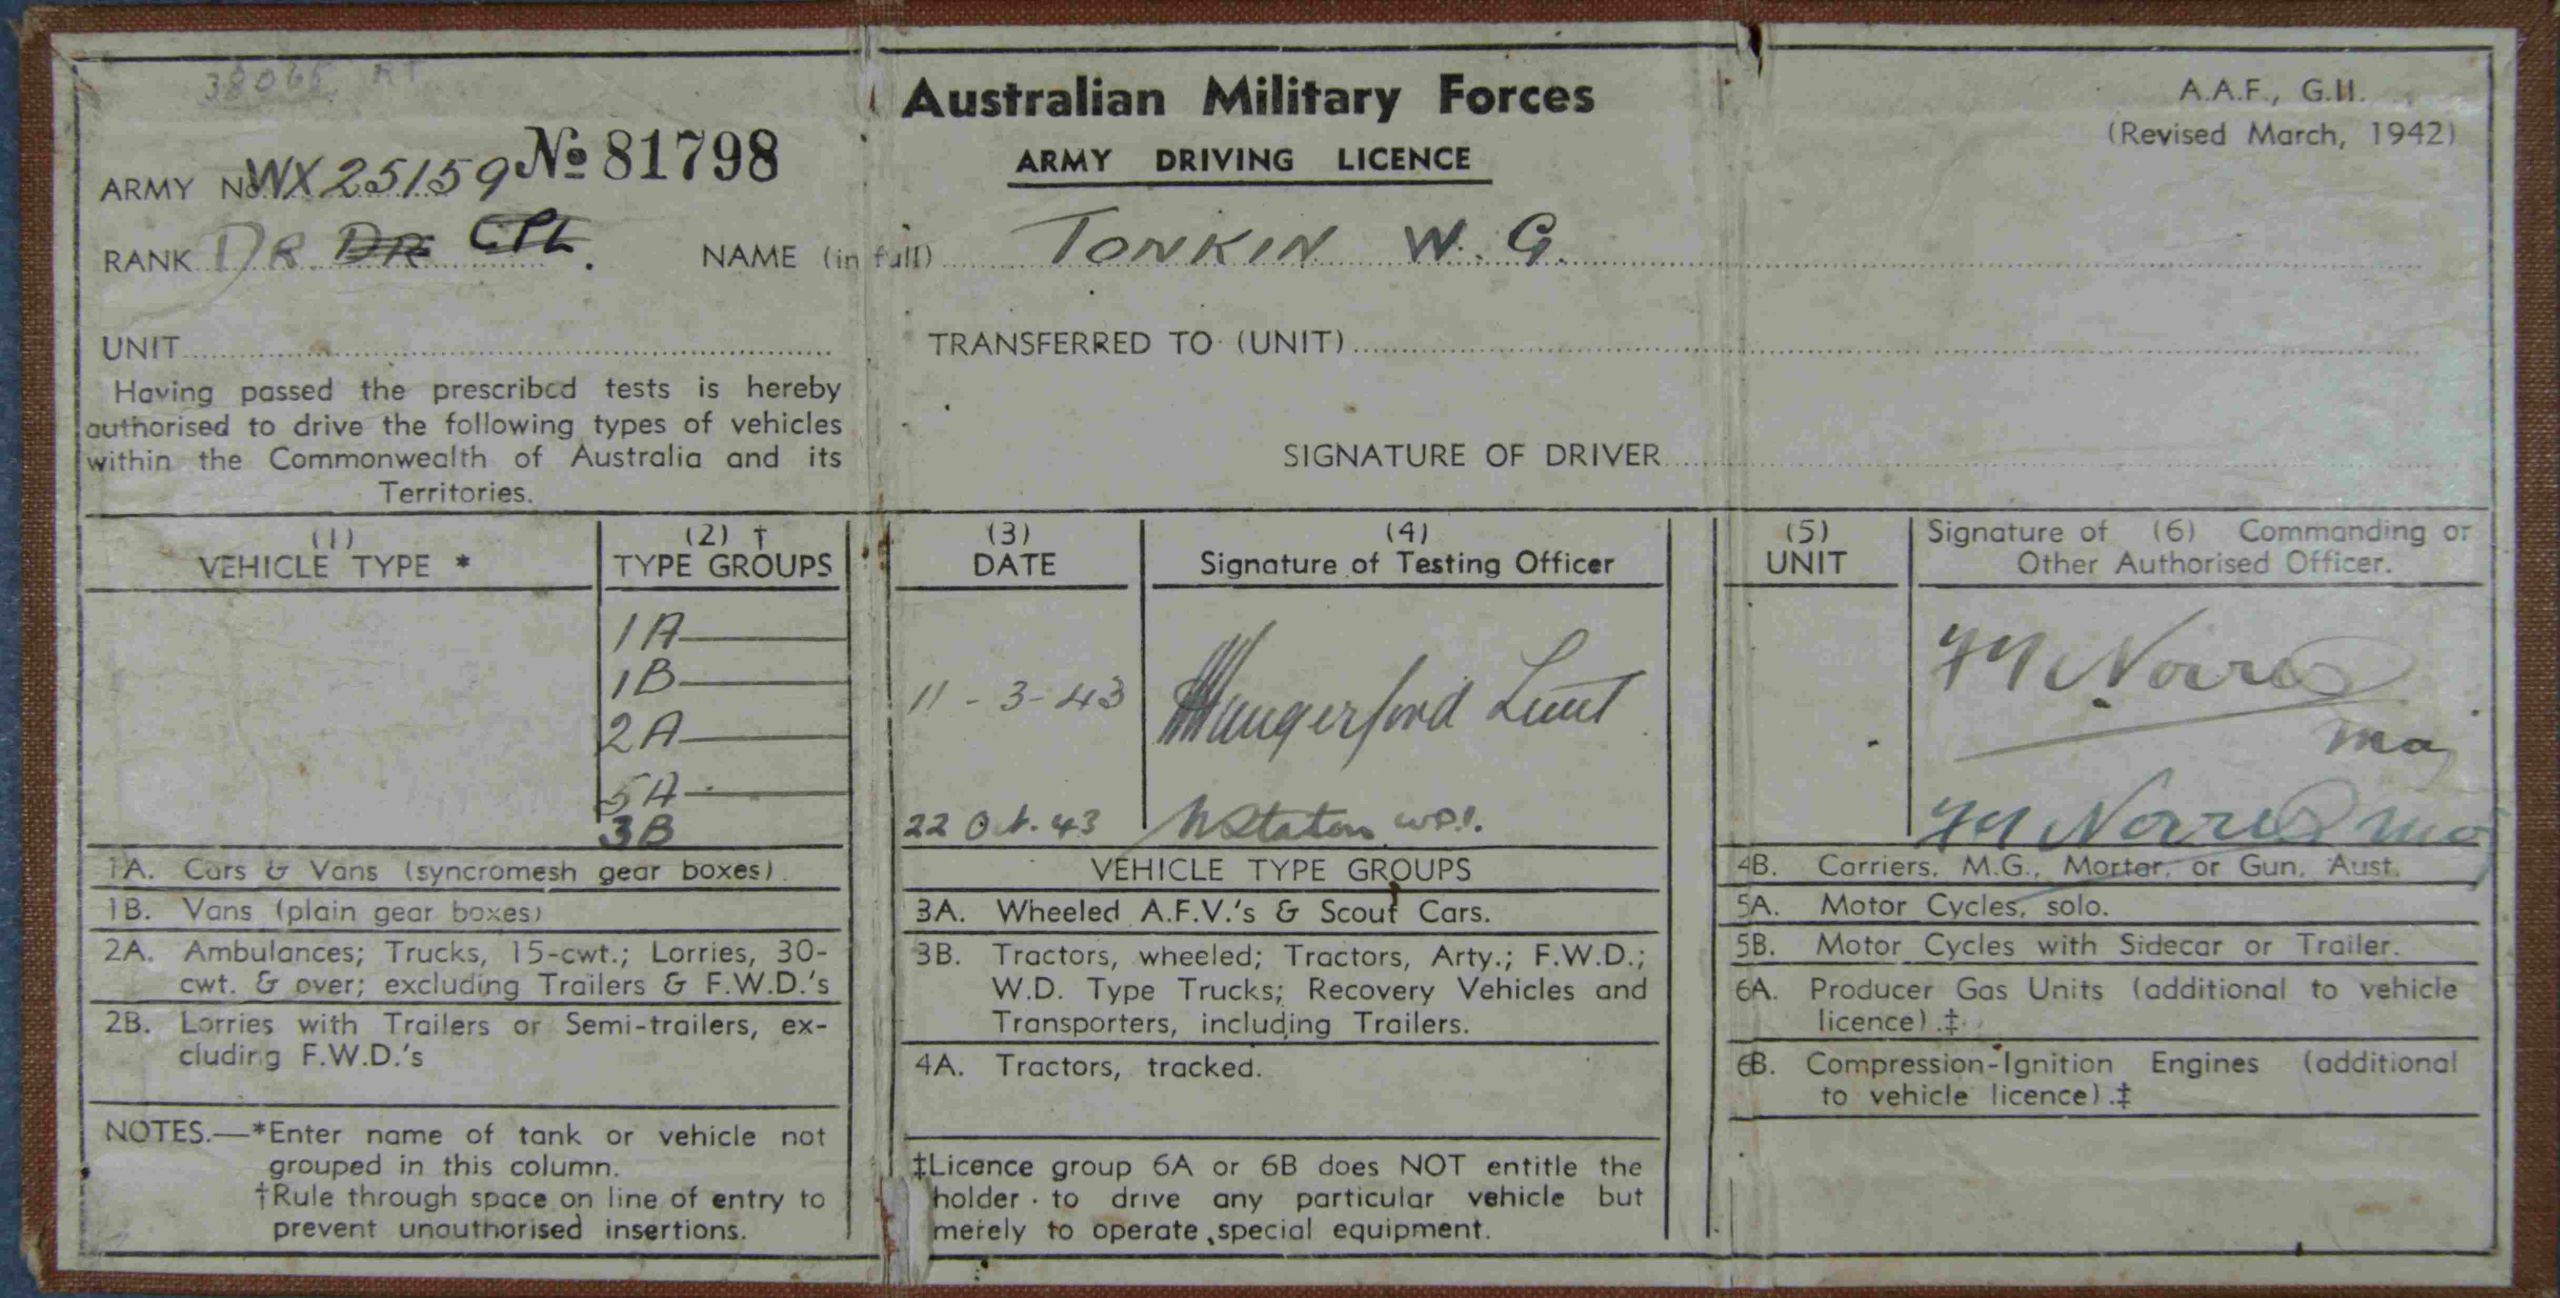 38065 RT
Australian Military Forces
ARMY DRIVING LICENCE
A.A.F., G.11.
(Revised March, 1942)
ARMY No. WX25159 No 81798
RANK DR DR CPL. NAME (in full) TONKIN W. G.
UNIT TRANSFERRED TO (UNIT)
Having passed the prescribed tests is hereby
authorised to drive the following types of vehicles
within the Commonwealth of Australia and its
Territories.
SIGNATURE OF DRIVER
(1)
VEHICLE TYPE *
(2) †
TYPE GROUPS
(3)
DATE
(4)
Signature of Testing Officer
(5)
UNIT
Signature of (6) Commanding or
Other Authorised Officer.
1A
1B
2A
5A
3B
11-3-43
Hungerford Lieut
Norris
Maj
22 Oct. 43
Norris Maj
1A. Cars & Vans (syncromesh gear boxes).
1B. Vans (plain gear boxes)
2A. Ambulances; Trucks, 15-cwt.; Lorries, 30-
cwt. & over; excluding Trailers & F.W.D.'s
2B. Lorries with Trailers or Semi-trailers, ex-
cluding F.W.D.'s
NOTES.—*Enter name of tank or vehicle not
grouped in this column.
†Rule through space on line of entry to
prevent unauthorised insertions.
VEHICLE TYPE GROUPS
3A. Wheeled A.F.V.'s & Scout Cars.
3B. Tractors, wheeled; Tractors, Arty.; F.W.D.;
W.D. Type Trucks; Recovery Vehicles and
Transporters, including Trailers.
4A. Tractors, tracked.
‡Licence group 6A or 6B does NOT entitle the
holder to drive any particular vehicle but
merely to operate special equipment.
4B. Carriers, M.G., Mortar, or Gun, Aust.
5A. Motor Cycles, solo.
5B. Motor Cycles with Sidecar or Trailer.
6A. Producer Gas Units (additional to vehicle
licence).‡
6B. Compression-Ignition Engines (additional
to vehicle licence).‡